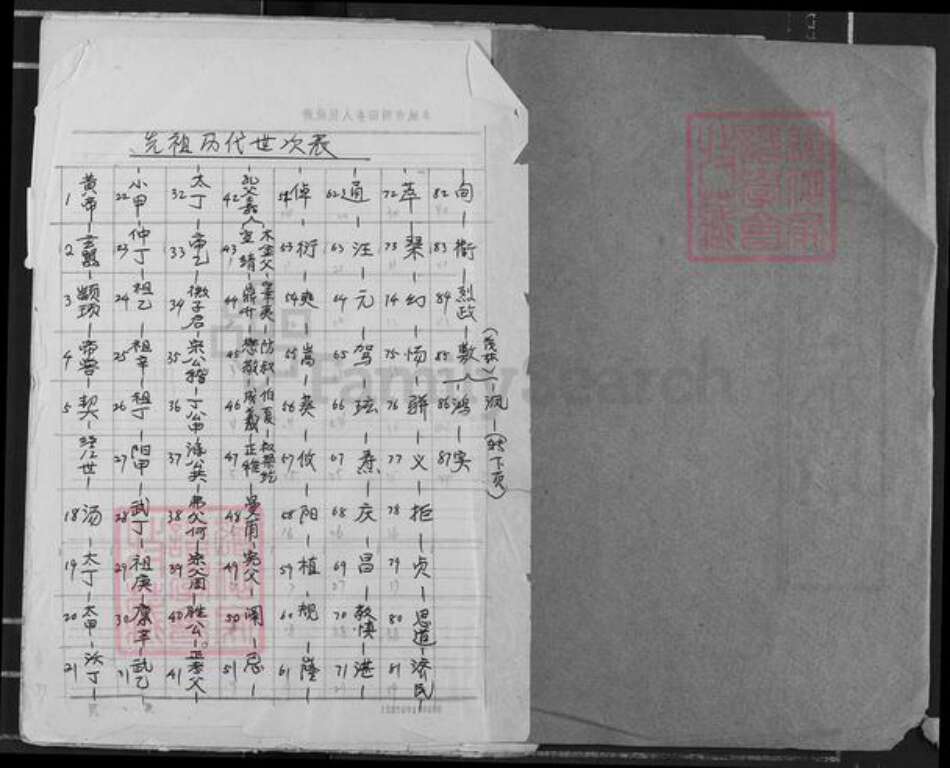 先祖历代世次表
1 黄帝
2 玄嚣
3 颛顼
4 帝喾
5 契
经江世
18 汤
19 太丁
20 太甲
21 沃丁
22 小甲
23 仲丁
24 祖乙
25 祖辛
26 祖丁
27 阳甲
28 武丁
29 祖庚
30 廪辛
31 武乙
32 太丁
33 帝乙
34 微子启
35 宋公稽
36 丁公申
37 湣公共
38 弗父何
39 宋父周
40 胜公
41 正考父
42 孔父嘉
43 木金父
44 睾夷
45 防叔
46 伯夏
47 叔梁纥
48 曼甫
49 宪父
50 阐
51 忌
倬
53 衍
54 爽
55 嵩
56 葵
57 攸
58 阳
59 植
60 规
61 隆
62 通
63 汪
64 元
65 驾
66 弦
67 焘
68 庆
69 昌
70 敦慎
71 湛
72 萃
73 琹
74 幻
75 惕
76 骈
77 义
78 拒
79 贞
80 思道
81 济民
82 甸
83 衡
84 烈政
85 敷
86 鸿
87 实
沨
(转下页)
FamilySearch